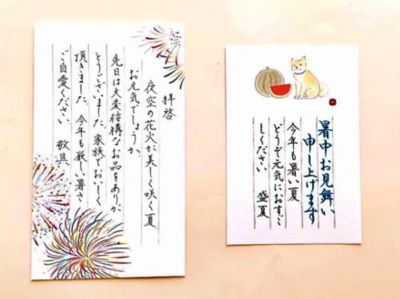 拝啓
夜空の花火が美しく咲く夏
お元気でしょうか
先日は大変結構なお品をありが
とうございました。家族でおいしく
頂きました。今年も厳しい暑さ
ご自愛ください。 敬具
暑中お見舞い
申し上げます
今年も暑い夏
どうぞ元気におすごし
しください 盛夏